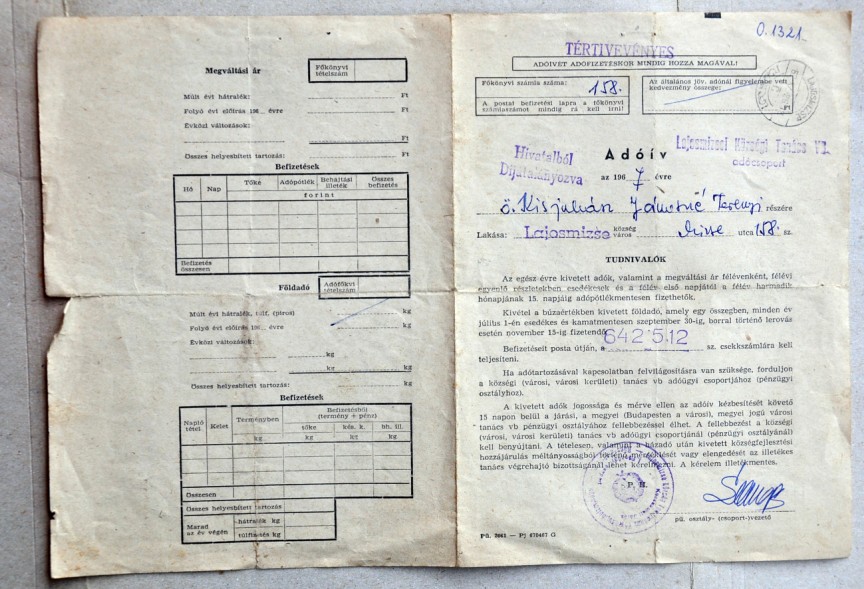 Megváltási ár
Főkönyvi tételszám
Múlt évi hátralék: Ft
Folyó évi előírás 196 évre
Évközi változások:
Ft
Összes helyesbített tartozás: Ft
Befizetések
Hó Nap Tőke Adópótlék Behajtási illeték Összes befizetés
forint
Befizetés összesen
Földadó
Adófőkvi tételszám
Múlt évi hátralék, túlf. (piros) kg
Folyó évi előírás 196 évre kg
Évközi változások:
kg
kg kg
Összes helyesbített tartozás: kg
Befizetések
Napló tétel. Kelet Terményben Befizetésből (termény + pénz)
tőke kés. k. bh. ill.
kg kg kg kg
Összesen
Összes helyesbített tartozás
Marad az év végén hátralék kg
túlfizetés kg
O.1321
TÉRTIVEVÉNYES
ADÓÍVÉT ADÓFIZETÉSKOR MINDIG HOZZA MAGÁVAL!
Főkönyvi számla száma: 158.
A postai befizetési lapra a főkönyvi számlaszámot mindig rá kell írni!
Az általános jöv. adónál figyelembe vett kedvezmény összege:
Ft
LAJOSMIZSE
Hivatalból Díjátalányozva
Adóív
Lajosmizsei Községi Tanács VB. adócsoport
az 1967 évre
ö. Kisjuhán Jánosné Terenyi részére
Lakása: Lajosmizse község város Mizse utca 158. sz.
TUDNIVALÓK
Az egész évre kivetett adók, valamint a megváltási ár félévenként, félévi
egyenlő részletekben esedékesek és a félév első napjától a félév harmadik
hónapjának 15. napjáig adópótlékmentesen fizethetők.
Kivétel a búzaértékben kivetett földadó, amely egy összegben, minden év
július 1-én esedékes és kamatmentesen szeptember 30-ig, borral történő lerovás
esetén november 15-ig fizetendő.
Befizetéseit posta útján, a 642512 sz. csekkszámlára kell
teljesíteni.
Ha adótartozásával kapcsolatban felvilágosításra van szüksége, forduljon
a községi (városi, városi kerületi) tanács vb adóügyi csoportjához (pénzügyi
osztályhoz).
A kivetett adók jogossága és mérve ellen az adóív kézbesítését követő
15 napon belül a járási, a megyei (Budapesten a városi), megyei jogú városi
tanács vb pénzügyi osztályához fellebbezéssel élhet. A fellebbezést a községi
(városi, városi kerületi) tanács vb adóügyi csoportjánál (pénzügyi osztályánál)
kell benyújtani. A tételesen, valamint a házadó után kivetett községfejlesztési
hozzájárulás méltányosságból történő mérséklését vagy elengedését az illetékes
tanács végrehajtó bizottságánál lehet kérelmezni. A kérelem illetékmentes.
P. H.
pü. osztály- (csoport-)vezető
Pü. 2061 — Pj 670487 G